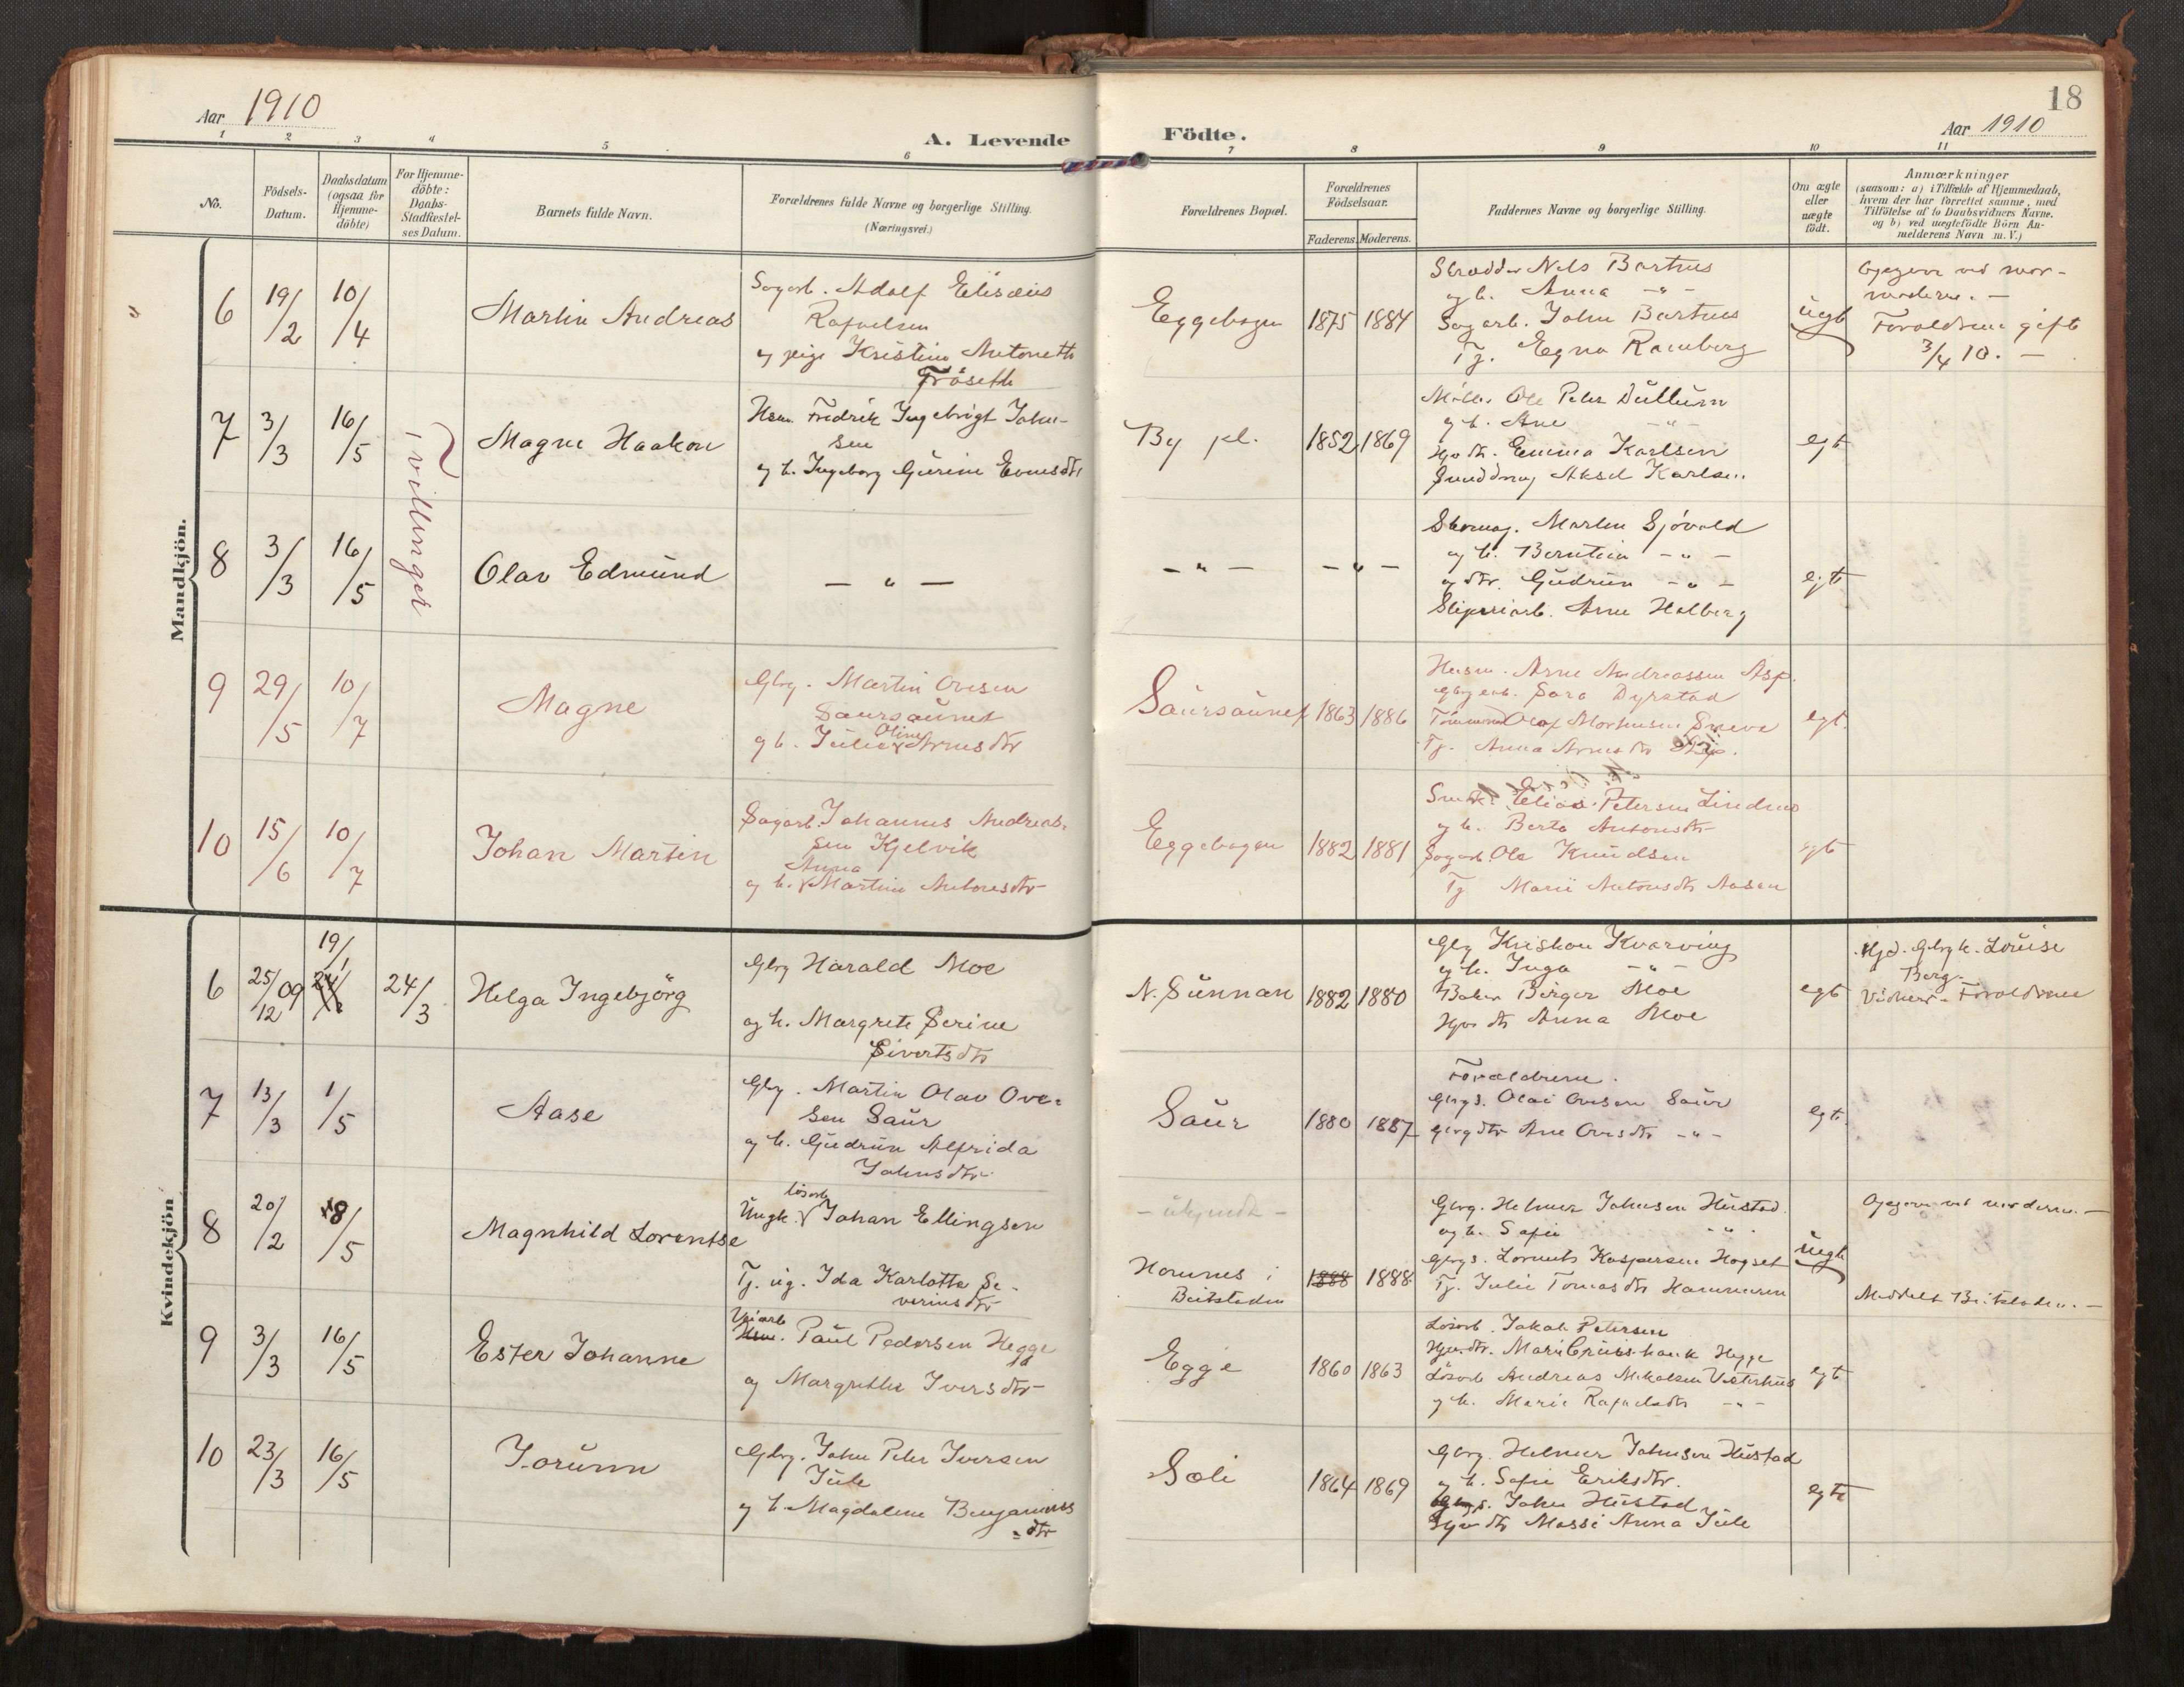 Aar 1910
A. Levende
Födte.
18
Aar 1910
1 2 3 4 5 6 7 8 9 10 11
No.
Födsels-
Datum.
Daabsdatum
(ogsaa for
Hjemme-
döbte)
For Hjemme-
döbte:
Daabs-
Stadfæstel-
ses Datum.
Barnets fulde Navn.
Forældrenes fulde Navne og borgerlige Stilling.
(Næringsvei.)
Forældrenes Bopæl.
Forældrenes
Födselsaar.
Faderens. Moderens.
Faddernes Navne og borgerlige Stilling.
Om ægte
eller
uægte
födt.
Anmærkninger
(saasom: a) i Tilfælde af Hjemmedaab,
hvem der har forrettet samme, med
Tilföielse af to Daabsvidners Navne.
og b) ved uægtefödte Börn An-
melderens Navn m. V.)
Mandkjön.
6
19/2
10/4
Martin Andreas
Sagarb. Adolf Elisæus
Rafaelsen
og pige Kristine Antonette
Fröseth
Eggebogen
1875 1884
Skrædder Nels Bartnes
og h. Anna -"-
Sagarb. John Bartnes
Tj. Egna Ramberg
uegt
Opgave ved mor-
moderen. -
Forældrene gift
3/4 10. -
7
3/3
16/5
Tvillinger
Magne Haakon
Hsm. Fredrik Ingebrigt John-
sen
og h. Ingeborg Gurine Evensdtr
By pl.
1852 1869
Möller Ole Peter Dullum
og h. Ane -"-
Hjv dtr. Emma Karlsen
Aksel Karlsen
egt
8
3/3
16/5
Olav Edmund
- " -
- " -
- " -
Skomag. Martin Sjövold
og h. Berntine - " -
og dtr. Gudrun - " -
Sliperiarb. Arne Holberg
egt
9
29/5
10/7
Magne
Gbrg. Martin Ovesen
Saursaunet
Oline
og h. Julie v Arnesdtr
Saursaunet
1863 1886
Husm. Arne Andreassen Asp.
Sara Dyrstad
Tömmerm Olaf Mortensen Sneve
Tj. Anna Arnesdtr Asp.
egt.
10
15/6
10/7
Johan Martin
Sagarb. Johannes Andreas-
sen Kjelvik
Anna
og h. v Martine Antonsdtr
Eggebogen
1882 1881
Elias Petersen Lindmo
og h. Berta Antonsdtr
Sagarb. Ole Knudsen
Tj Marie Antonsdtr Aasen
egt
Kvindekjön
6
25/12 09
19/1
24/3
Helga Ingebjörg
Gbrg Harald Moe
og h. Margrete Serine
Sivertsdtr
N. Sunnan
1882 1880
Gbrg Kristian Kvarving
og h. Inga -"-
Baker Birger Moe
Hjv dtr Anna Moe
egt
Hjd. Gbrg k. Louise
Berg.
Vidner - Forældrene
7
13/3
1/5
Aase
Gbrg. Martin Olav Ove-
sen Saur
og h. Gudrun Alfrida
Johnsdtr
Saur
1880 1887
Forældrene.
Gbrgs. Olai Ovesen Saur
Gbrgdtr Ane Ovesdtr -"-
egt.
8
20/2
8/5
Magnhild Lorentse
lösarb
Ungk. v Johan Ellingsen
Tj. ug. Ida Karlotta Se-
verinsdtr
- ukjendt -
Hamnes i
Beitstaden
1888 1888
Gbrg. Helmer Johnsen Hustad
og h. Sofie "
Gbrgs. Lorents Kaspersen Hogset
Tj. Julie Tomasdtr Hammeren
uegt
Opgave ved moderen. -
Meddelt Beitstaden. -
9
3/3
16/5
Ester Johanne
Veiarb
Hsm. Paul Pedersen Hegge
og Margrethe Iversdtr
Egge
1860 1863
Lösarb. Jakob Petersen
Hjv.dtr. Marie Hegge
Lösarb Andreas Mikalsen Vesterhus
og h. Marie Rafaelsdtr -"-
egt
10
23/3
16/5
Jorunn
Gbrg. John Peter Iversen
Jule
og h. Magdalene Benjamins
-dtr
Soli
1864 1869
Gbrg. Helmer Johnsen Hustad
og h. Sofie Eriksdtr.
Gbrgs. John Hustad
Hjv dtr Massi Anna Jule
egte